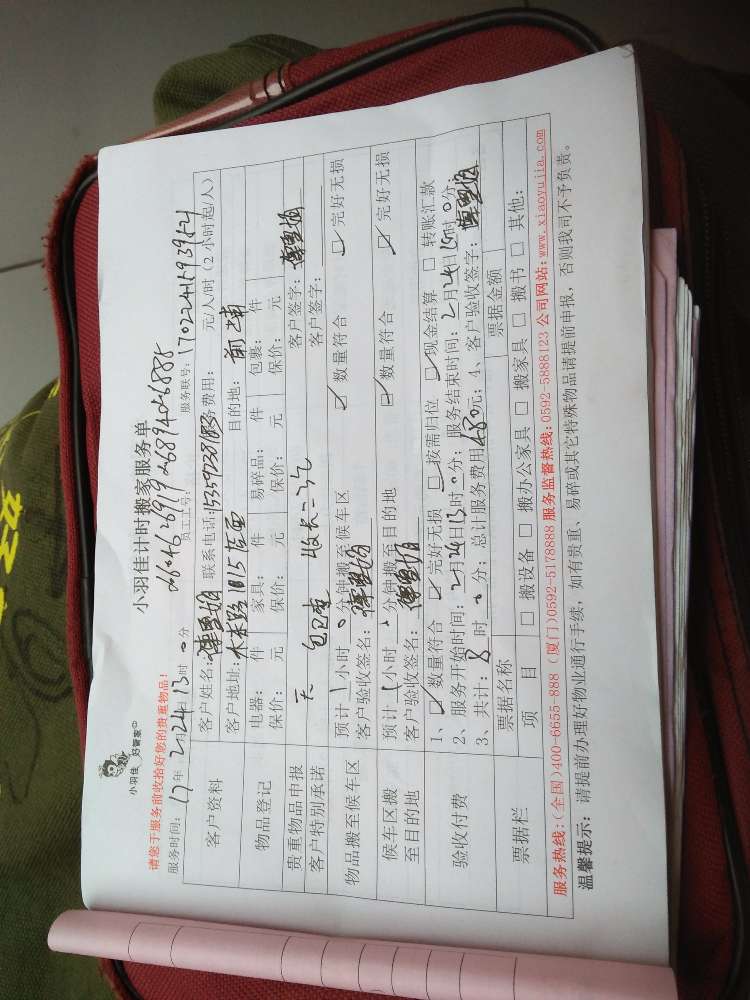 小羽佳 好管家
小羽佳计时搬家服务单
请您于服务前收拾好您的贵重物品!
员工工号:
服务时间: 17年 2月24日 13时 0分
服务联号:
客户资料
客户姓名: 联系电话: 服务费用: 元/人/时 (2小时起/人)
客户地址: 目的地: 前埔
物品登记
电器: 件 家具: 件 易碎品: 件 包裹: 件
保价: 元 保价: 元 保价: 元 保价: 元
贵重物品申报 无 客户签字:
客户特别承诺 客户签字:
物品搬至候车区
预计 1 小时 0 分钟搬至候车区 ☑ 数量符合 ☑ 完好无损
客户验收签名:
候车区搬至目的地
预计 1 小时 0 分钟搬至目的地 ☑ 数量符合 ☑ 完好无损
客户验收签名:
验收付费
1、☑ 数量符合 ☑ 完好无损 □ 按需归位 ☑ 现金结算 □ 转账汇款
2、服务开始时间: 2月24日13时0分; 服务结束时间: 2月24日15时0分;
3、共计: 8 时 0 分; 总计服务费用 480元; 4、客户验收签字:
票据栏
票据名称 票据金额
项目 □ 搬设备 □ 搬办公家具 □ 搬家具 □ 搬书 □ 其他:
服务热线:(全国)400-6655-888 (厦门)0592-5178888 服务监督热线:0592-5888123 公司网站:www.xiaoyujia.com
温馨提示: 请提前办理好物业通行手续, 如有贵重、易碎或其它特殊物品请提前申报, 否则我司不予负责。